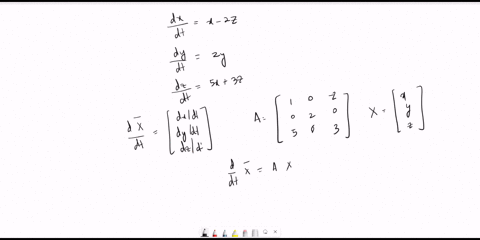 dx/dt = x - 2z
dy/dt = 2y
dz/dt = 5x + 3z
dX̄/dt = [dx/dt dy/dt dz/dt] A = [1 0 -2 0 2 0 5 0 3] X = [x y z]
d/dt X̄ = A X